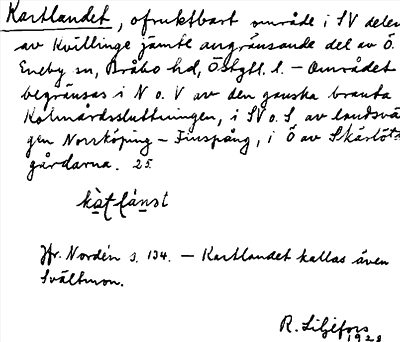 Kartlandet, ofruktbart område i SV delen
av Kvillinge jämte angränsande del av Ö.
Eneby sn, Bråbo hd, Östgtl. l. – Området
begränsas i N o. V av den ganska branta
Kolmårdssluttningen, i SV o. S av landsvä
gen Norrköping – Finspång, i Ö av Skärlöta
gårdarna. 25.
Jfr. Nordén s. 134. – Kartlandet kallas även
Svältmon.
R. Liljefors
1928